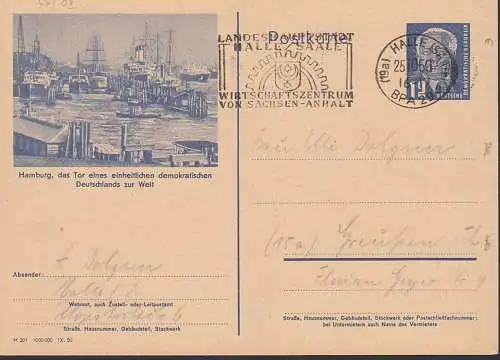 Postkarte
LANDESHAUPTSTADT
HALLE SAALE
WIRTSCHAFTSZENTRUM
VON SACHSEN-ANHALT
(19a) HALLE (S
25.10.50
BPA 2
12
DEUTSCHE
Hamburg, das Tor eines einheitlichen demokratischen
Deutschlands zur Welt
Frau Elli Dolgner
(15a) Greußen
Florian Geyer
Absender:
Dolgner
Halle
Wohnort, auch Zustell- oder Leitpostamt
Straße, Hausnummer, Gebäudeteil, Stockwerk
Straße, Hausnummer, Gebäudeteil, Stockwerk oder Postschließfachnummer;
bei Untermietern auch Name des Vermieters